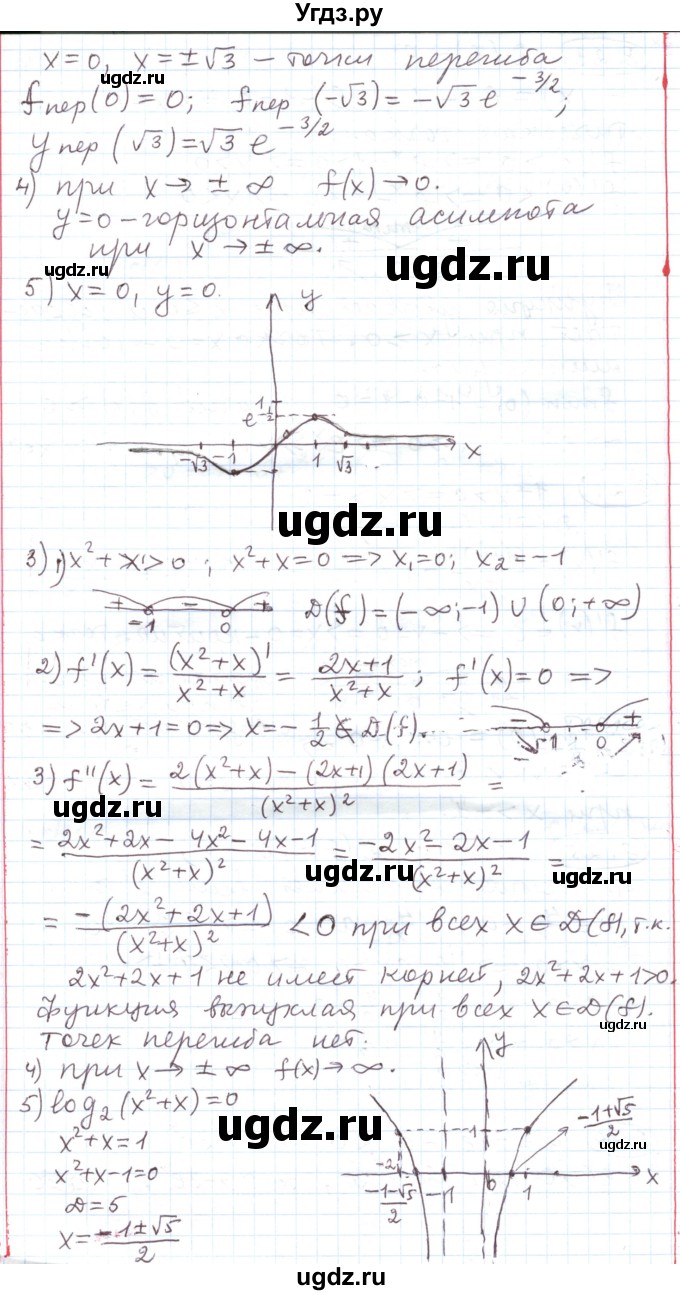 Угдз.ру
x=0, x=±√3 – точки перегиба
ugdz.ru
fпер(0)=0; fпер(-√3)=-√3 e^(-3/2);
yпер(√3)=√3 e^(-3/2)
ugdz.ru
4) при x→±∞ f(x)→0.
y=0 – горизонтальная асимптота
при x→±∞.
ugdz.ru
ugdz.ru
5) x=0, y=0.
y
1
e^(1/2)
-√3 -1 1 √3 x
ugdz.ru
3) 1) x²+x>0; x²+x=0 => x₁=0; x₂=-1
+ – +
-1 0
D(f)=(-∞;-1)∪(0;+∞)
2) f'(x)=(x²+x)'/(x²+x)=(2x+1)/(x²+x); f'(x)=0 =>
=> 2x+1=0 => x=-1/2 ∉ D(f).
– +
-1 0
3) f''(x)=(2(x²+x)-(2x+1)(2x+1))/(x²+x)²=
ugdz.ru
=(2x²+2x-4x²-4x-1)/(x²+x)²=(-2x²-2x-1)/(x²+x)²=
ugdz.ru
ugdz.ru
=-(2x²+2x+1)/(x²+x)² <0 при всех x∈D(f), т.к.
2x²+2x+1 не имеет корней, 2x²+2x+1>0.
функция выпуклая при всех x∈D(f).
ugdz.ru
точек перегиба нет.
4) при x→±∞ f(x)→∞.
5) log₂(x²+x)=0
ugdz.ru
x²+x=1
x²+x-1=0
D=5
x=(-1±√5)/2
y
1
(-1+√5)/2
ugdz.ru
-2
(-1-√5)/2 -1 0 1 x
ugdz.ru
ugdz.ru